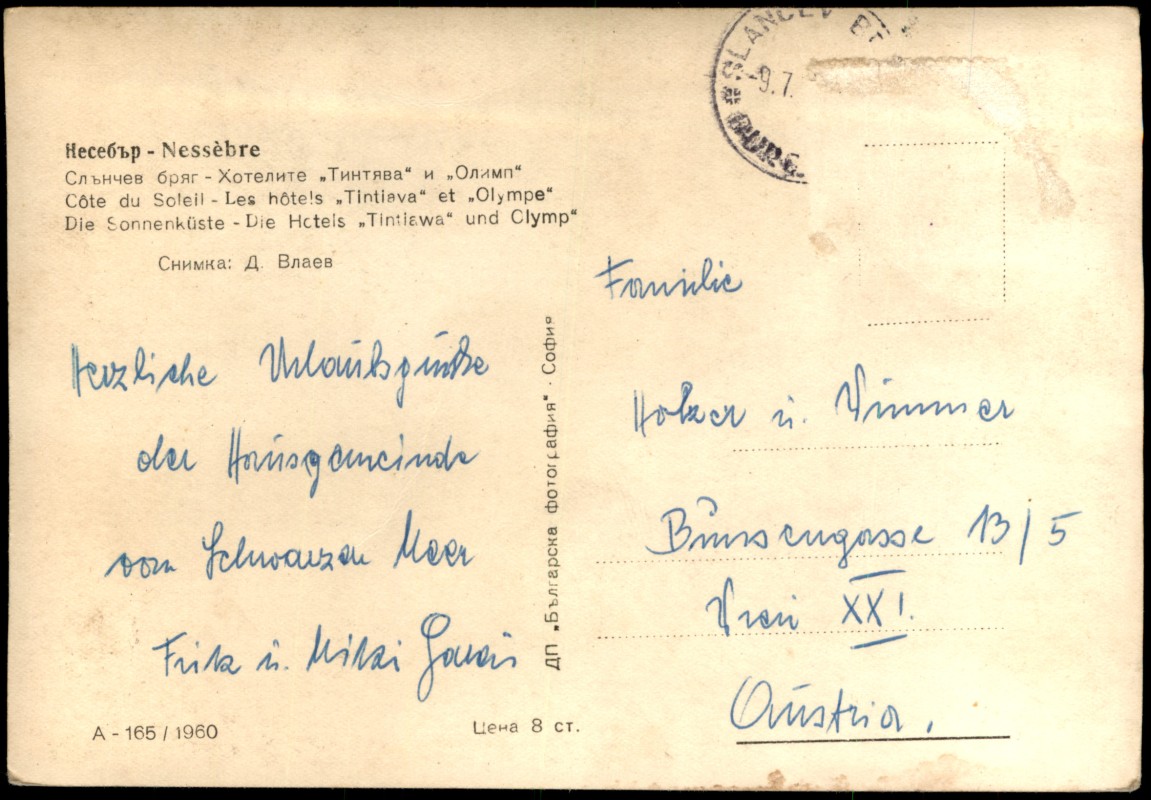 SLANCEV BR
9.7.
BURG.
Несебър - Nessèbre
Слънчев бряг - Хотелите „Тинтява“ и „Олимп“
Côte du Soleil - Les hôtels „Tintiava“ et „Olympe“
Die Sonnenküste - Die Hotels „Tintiawa“ und Olymp“
Снимка: Д. Влаев
Herzliche Urlaubsgrüße
der Hausgemeinde
vom Schwarzen Meer
Fritz u. Mitzi
A - 165 / 1960
Цена 8 ст.
ДП „Българска фотография“ · София
Familie
Holzer u. Wimmer
Bunsengasse 13/5
Wien XXI.
Austria.